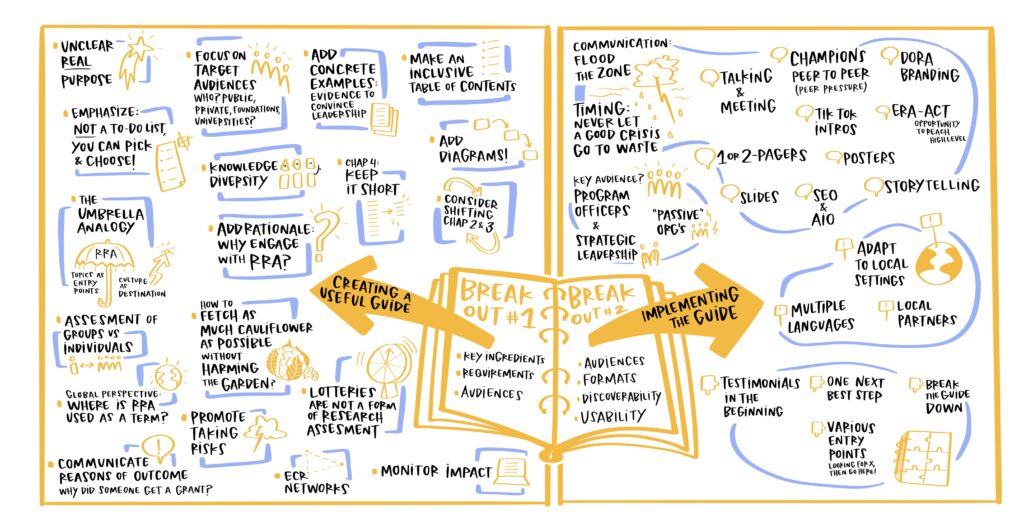 UNCLEAR
REAL
PURPOSE
FOCUS ON
TARGET
AUDIENCES
WHO? PUBLIC,
PRIVATE, FOUNDATIONS,
UNIVERSITIES?
ADD
CONCRETE
EXAMPLES:
EVIDENCE TO
CONVINCE
LEADERSHIP
MAKE AN
INCLUSIVE
TABLE OF CONTENTS
EMPHASIZE:
NOT A TO-DO LIST,
YOU CAN PICK
& CHOOSE!
KNOWLEDGE
DIVERSITY
CHAP 4:
KEEP
IT SHORT
ADD
DIAGRAMS!
THE
UMBRELLA
ANALOGY
RRA
TOPICS AS
ENTRY
POINTS
CULTURE AS
DESTINATION
ADD RATIONALE:
WHY ENGAGE
WITH RRA?
CONSIDER
SHIFTING
CHAP 2 & 3
CREATING A
USEFUL GUIDE
ASSESMENT OF
GROUPS VS
INDIVIDUALS
HOW TO
FETCH AS
MUCH CAULIFLOWER
AS POSSIBLE
WITHOUT
HARMING
THE GARDEN?
GLOBAL PERSPECTIVE:
WHERE IS RRA
USED AS A TERM?
PROMOTE
TAKING
RISKS
LOTTERIES
ARE NOT A FORM
OF RESEARCH
ASSESMENT
COMMUNICATE
REASONS OF OUTCOME
WHY DID SOMEONE GET A GRANT?
ECR
NETWORKS
MONITOR IMPACT
BREAK
OUT #1
KEY INGREDIENTS
REQUIREMENTS
AUDIENCES
BREAK
OUT #2
AUDIENCES
FORMATS
DISCOVERABILITY
USABILITY
IMPLEMENTING
THE GUIDE
COMMUNICATION:
FLOOD
THE ZONE
TIMING:
NEVER LET
A GOOD CRISIS
GO TO WASTE
KEY AUDIENCE?
PROGRAM
OFFICERS
&
STRATEGIC
LEADERSHIP
"PASSIVE"
ORG'S
TALKING
&
MEETING
CHAMPIONS
PEER TO PEER
(PEER PRESSURE)
DORA
BRANDING
TIK TOK
INTROS
ERA-ACT
OPPORTUNITY
TO REACH
HIGH LEVEL
1 OR 2-PAGERS
POSTERS
SLIDES
SEO
&
AIO
STORYTELLING
ADAPT
TO LOCAL
SETTINGS
MULTIPLE
LANGUAGES
LOCAL
PARTNERS
TESTIMONIALS
IN THE
BEGINNING
ONE NEXT
BEST STEP
BREAK
THE GUIDE
DOWN
VARIOUS
ENTRY
POINTS
LOOKING FOR X,
THEN GO HERE!